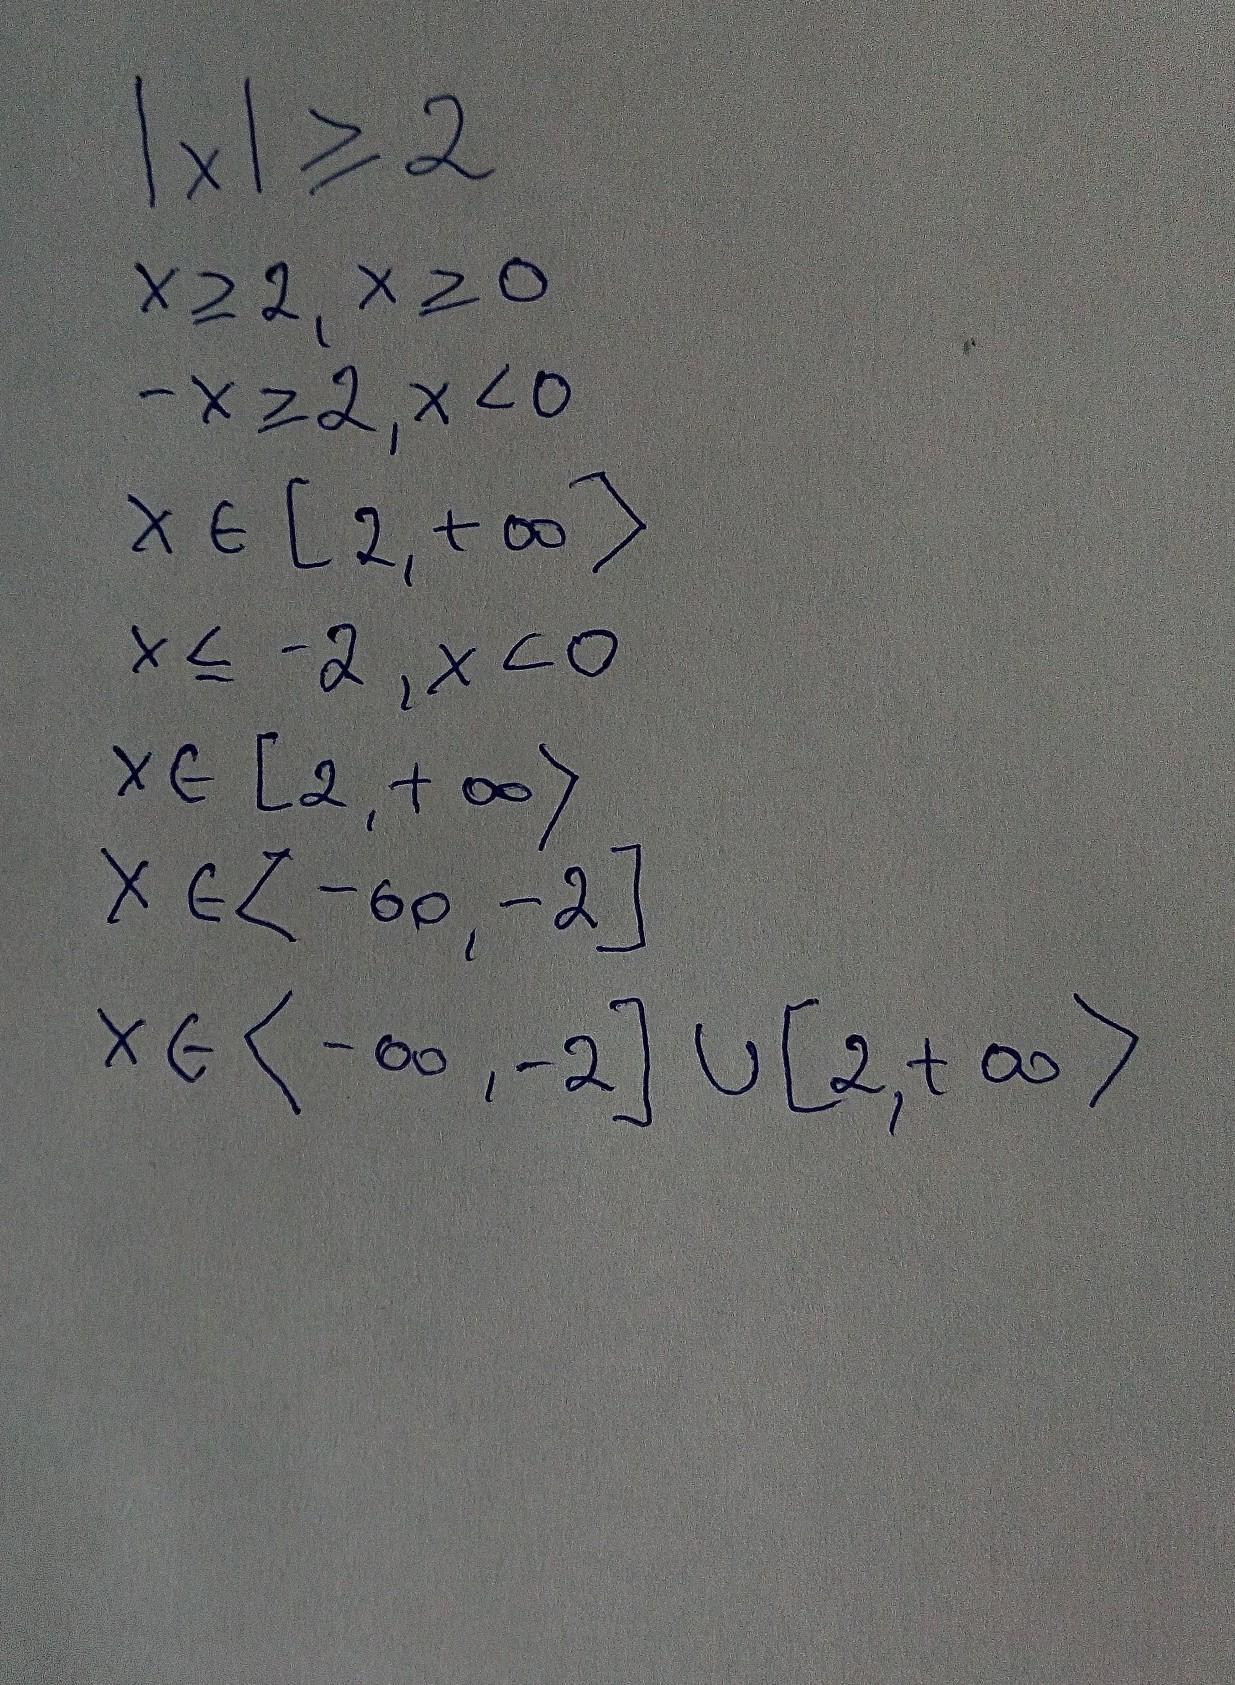 |x| ⩾ 2
x ≥ 2, x ≥ 0
-x ≥ 2, x < 0
x ∈ [2, +∞⟩
x ≤ -2, x < 0
x ∈ [2, +∞⟩
x ∈ ⟨-∞, -2]
x ∈ ⟨-∞, -2] ∪ [2, +∞⟩